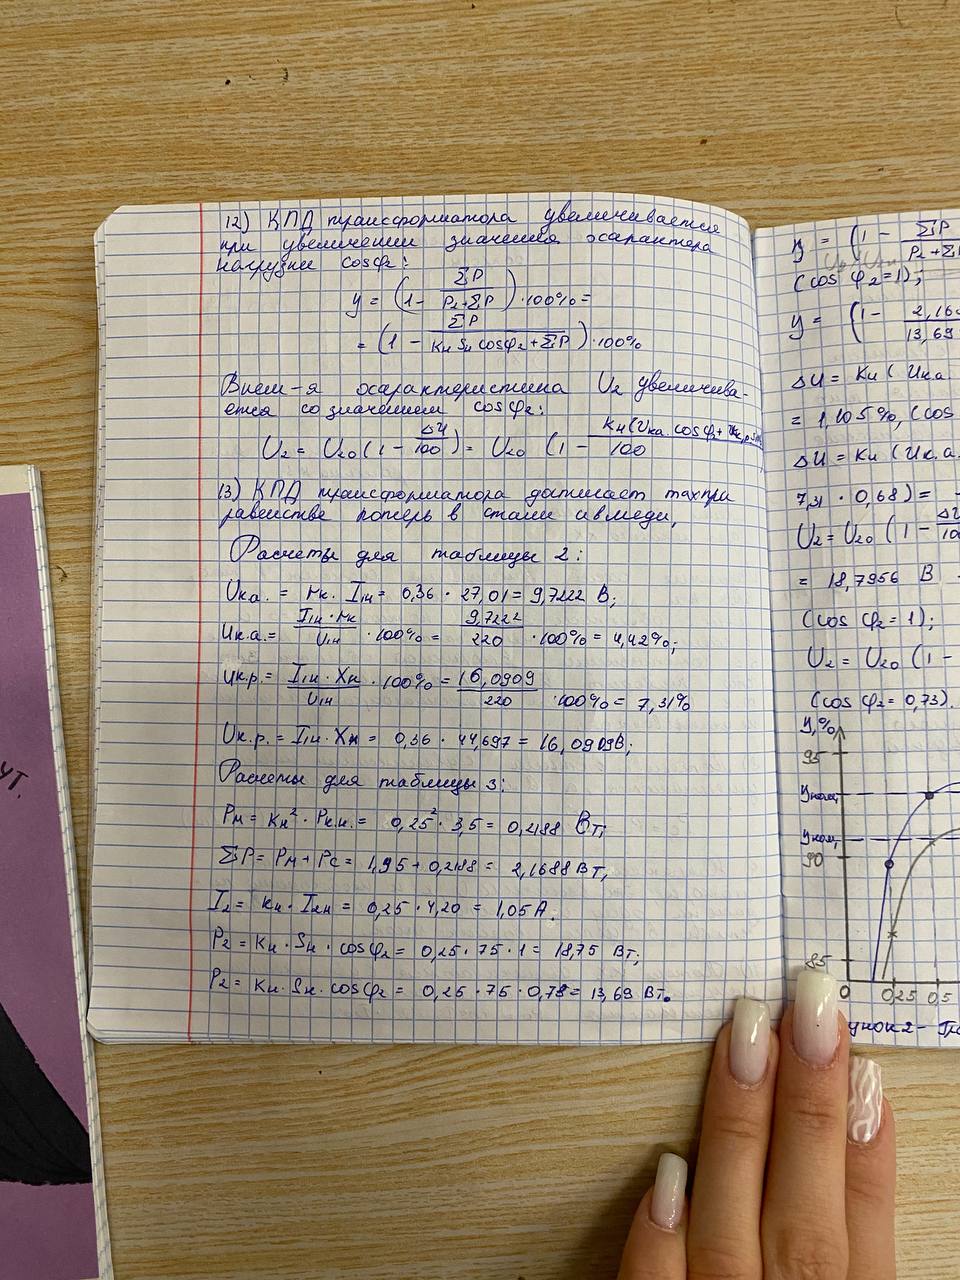 12) КПД трансформатора увеличивается
при увеличении значения характера
нагрузки cosφ₂:
η = (1 - ΣP / (P₂+ΣP)) · 100% =
= (1 - ΣP / (Kн Sн cosφ₂ + ΣP)) · 100%
Внеш-я характеристика U₂ увеличива-
ется со значением cosφ₂:
U₂ = U₂₀ (1 - ΔU/100) = U₂₀ (1 - Kн (Uка. cosφ₂ +
100
13) КПД трансформатора достигает max при
равенстве потерь в стали и в меди,
Расчеты для таблицы 2:
Uка. = rк. I₁н = 0,36 · 27,01 = 9,7222 В;
Uк.а. = I₁н · rк / U₁н · 100% = 9,7222 / 220 · 100% = 4,42%;
Uк.р. = I₁н · Xк / U₁н · 100% = 16,0909 / 220 · 100% = 7,31%
Uк.р. = I₁н · Xк = 0,36 · 44,697 = 16,0909В;
Расчеты для таблицы 3:
Pм = Kн² · Pк.н. = 0,25² · 3,5 = 0,2188 Вт;
ΣP = Pм + Pс = 1,95 + 0,2188 = 2,1688 Вт,
I₂ = Kн · I₂н = 0,25 · 4,20 = 1,05 А.
P₂ = Kн · Sн · cosφ₂ = 0,25 · 75 · 1 = 18,75 Вт;
P₂ = Kн · Sн · cosφ₂ = 0,25 · 75 · 0,73 = 13,69 Вт.
η = (1 - ΣP / P₂+Σ
(cos φ₂=1);
η = (1 - 2,16 / 13,69
ΔU = Kн ( Uка
= 1,105%, (cos
ΔU = Kн (Uк.а.
7,31 · 0,68) =
U₂ = U₂₀ (1 - ΔU
= 18,7956 В
(cos φ₂ = 1);
U₂ = U₂₀ (1 -
(cos φ₂ = 0,73).
η,%
95
ηном,
ηном,
90
85
0 0,25 0,5
унок 2 -
ут.